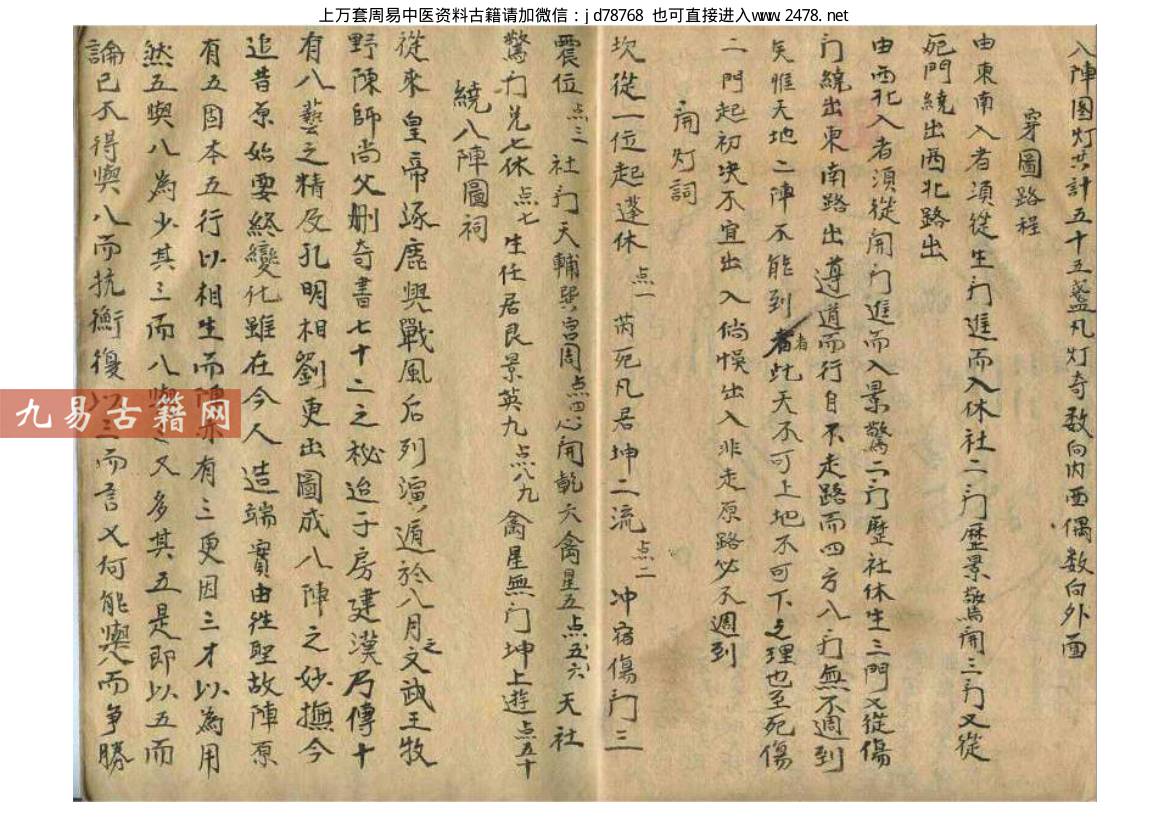 上万套周易中医资料古籍请加微信：jd78768 也可直接进入www.2478.net
八陣图灯共計五十五盞凡灯奇数向内面偶数向外面
穿圖路程
由東南入者須從生门進而入休社二门歷景驚開三门又從
死門繞出西北路出
由西北入者須從開门進而入景驚二门歷社休生三門又從傷
门繞出東南路出遵道而行自不走路而四方八门無不週到
矣惟天地二陣不能到者此天不可上地不可下之理也至死傷
二門起初决不宜出入倘悞出入非走原路必不週到
開灯詞
坎從一位起蓬休 点一 芮死凡居坤二流 点二 冲宿傷门三
震位 点三 社门天輔巽宫周 点四 心開乾六禽星五 点五六 天社
驚门兑七休 点七 生任居艮景英九 点八九 禽星無门坤上遊 点五十
繞八陣圖祠
從來皇帝逐鹿興戰風后列演遁於八月之文武王牧
野陳師尚父删奇書七十二之秘迨子房建漢乃傳十
有八藝之精及孔明相劉更出圖成八陣之妙撫今
追昔原始要終變化雖在今人造端實由徃聖故陣原
有五因本五行以相生而陣亦有三更因三才以為用
然五與八為少其三而八與 又多其五是即以五而
論已不得與八而抗衡復以三而言又何能與八而争勝
九易古籍网